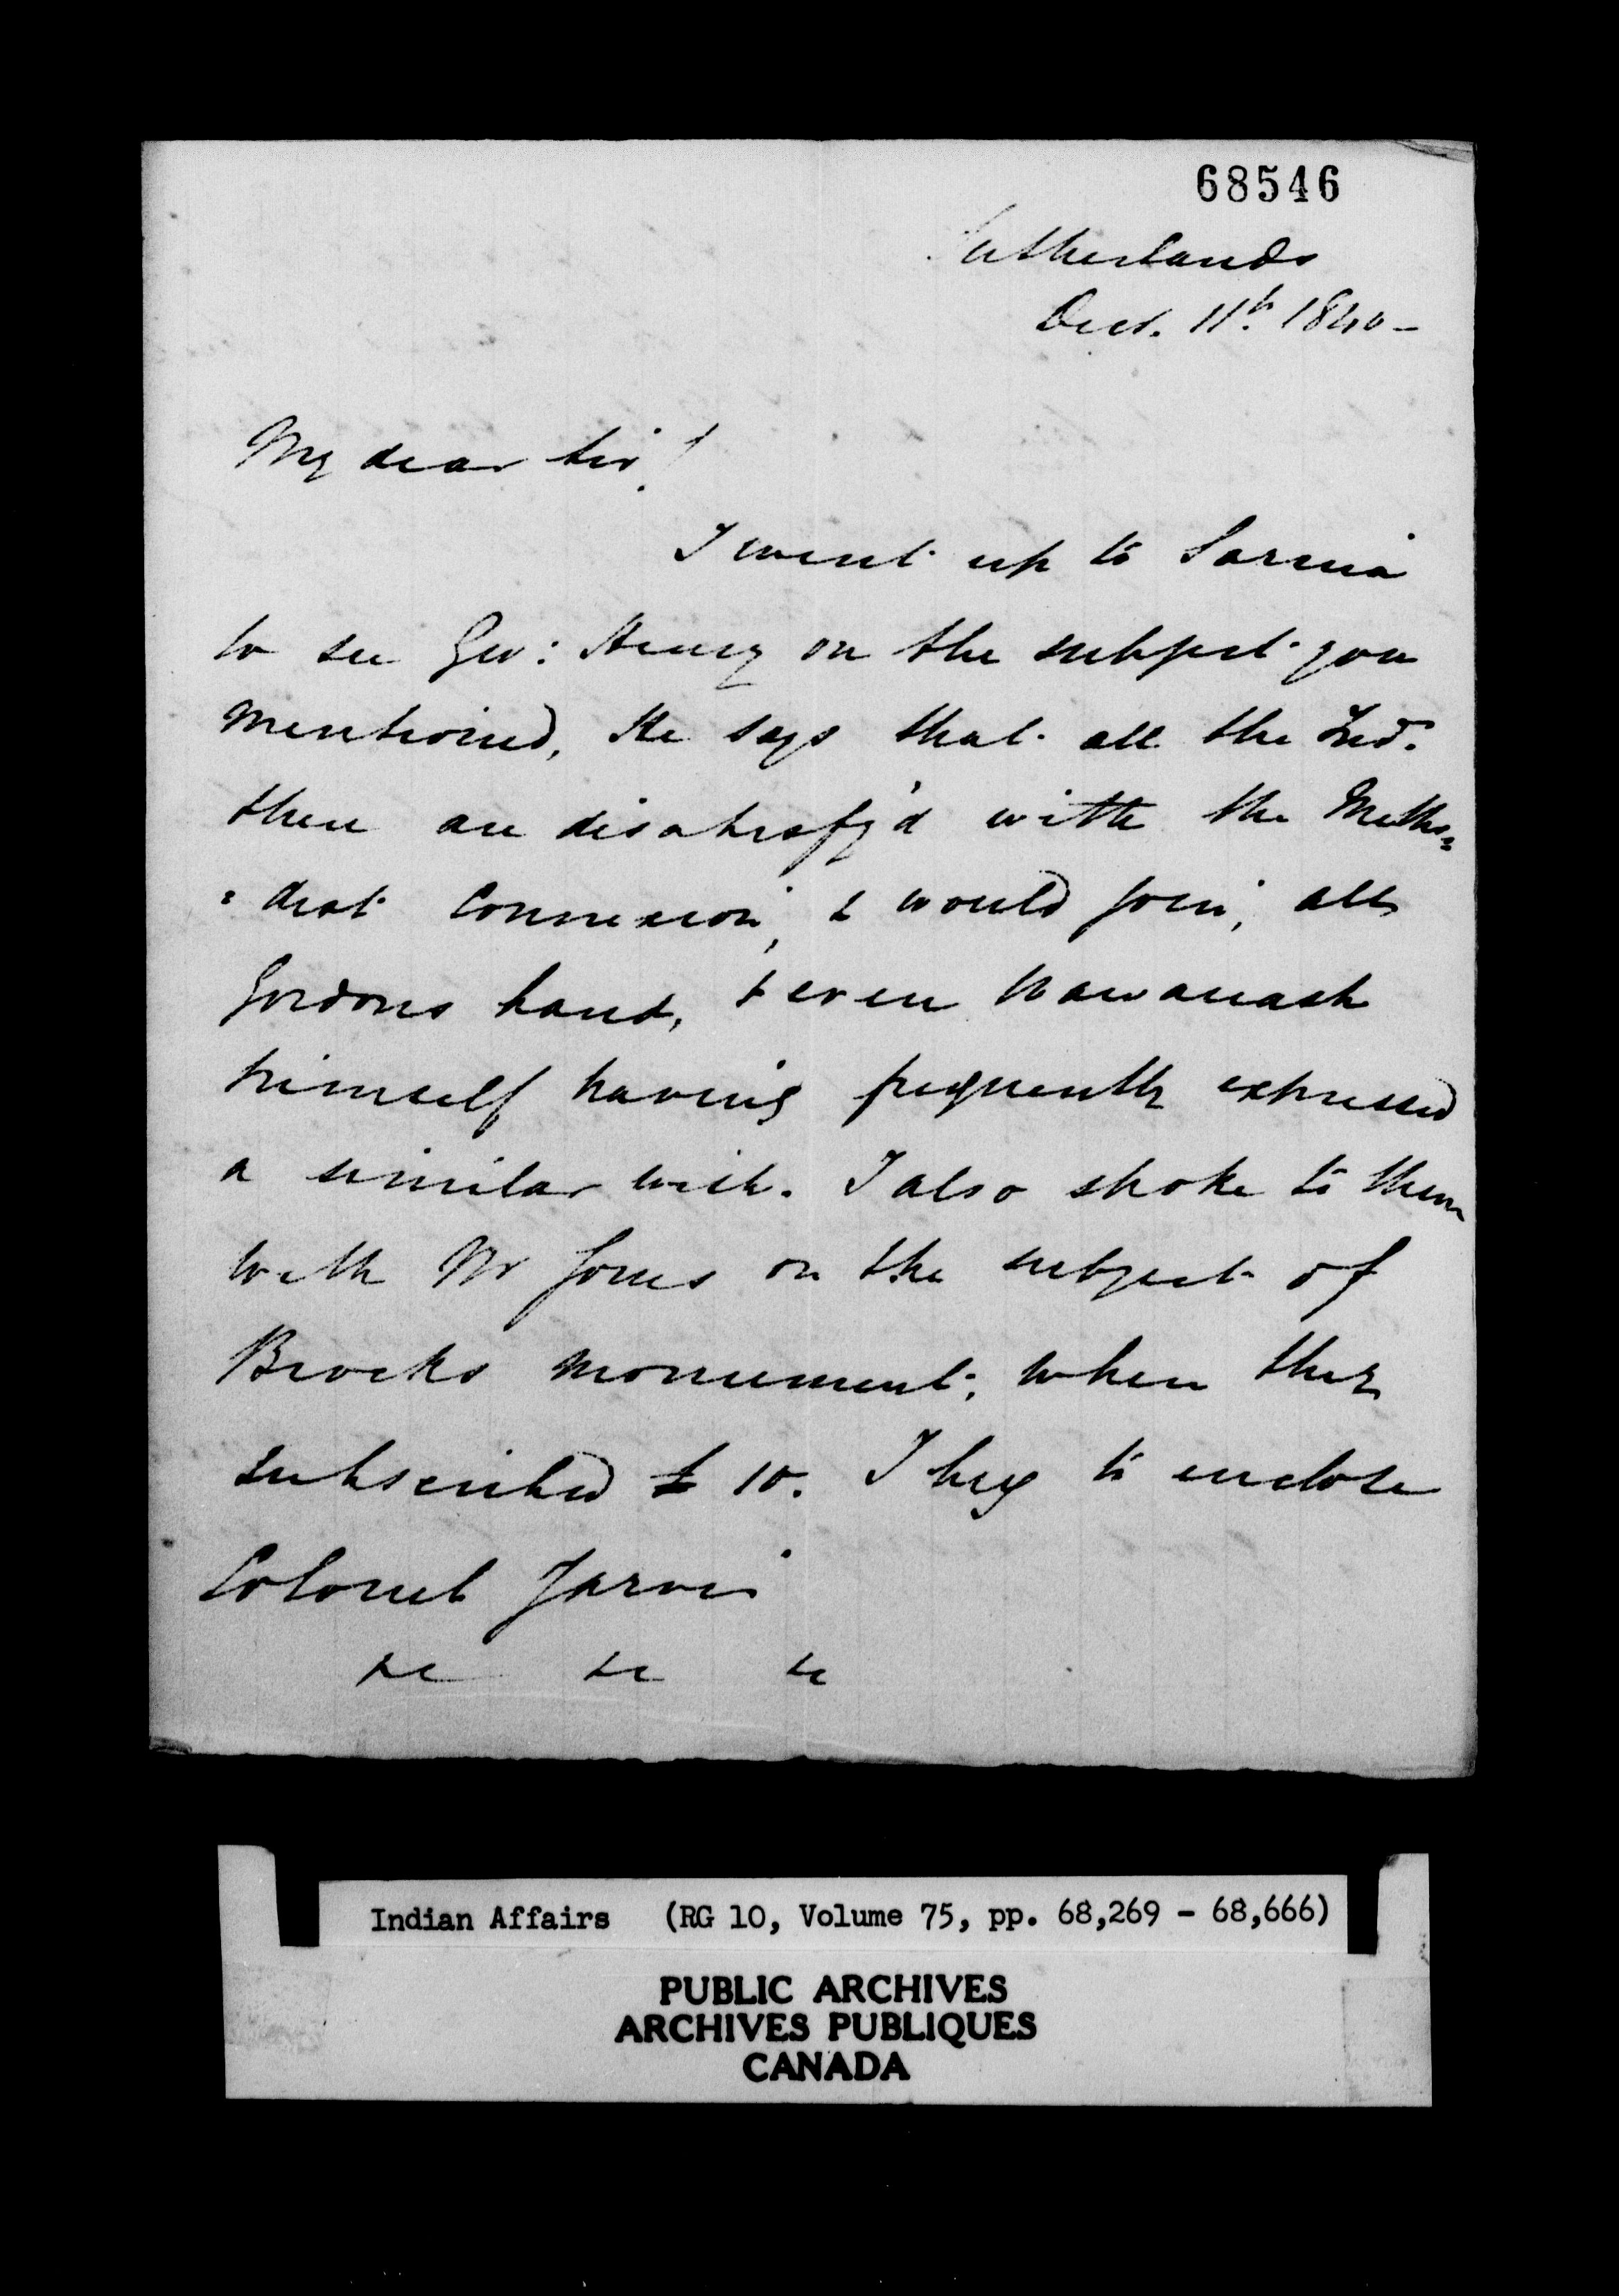 68546
Sutherlands
Decr. 11th. 1840-
My dear Sir!
I went up to Sarnia
to see Geo: Henry on the subject you
mentioned, He says that all the Inds.
there are disatisfy'd with the Metho=
=dist Connexion, & would join, all
Gordons band, & even Wawanash
himself having frequently expressed
a similar wish. I also spoke to them
with Mr Jones on the subject of
Brocks Monument; when they
subscribed £10. I beg to enclose
Colonel Jarvis
&c &c &c
Indian Affairs (RG 10, Volume 75, pp. 68,269 - 68,666)
PUBLIC ARCHIVES
ARCHIVES PUBLIQUES
CANADA